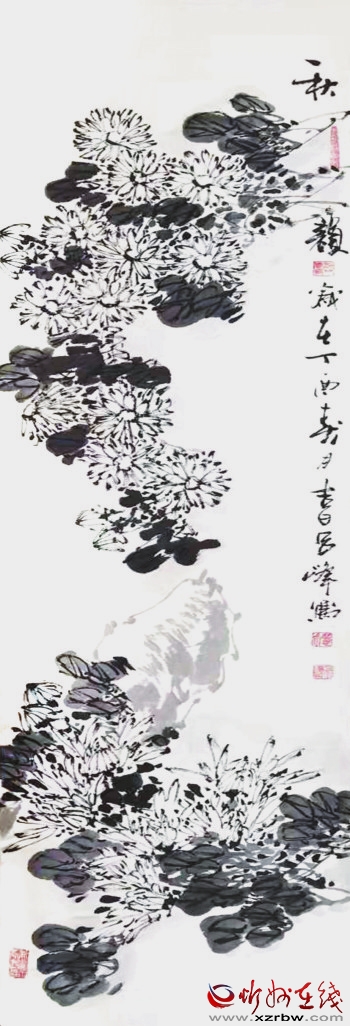 秋韵
岁在丁酉春月吉日吕峰写
忻州在线
www.xzrbw.com